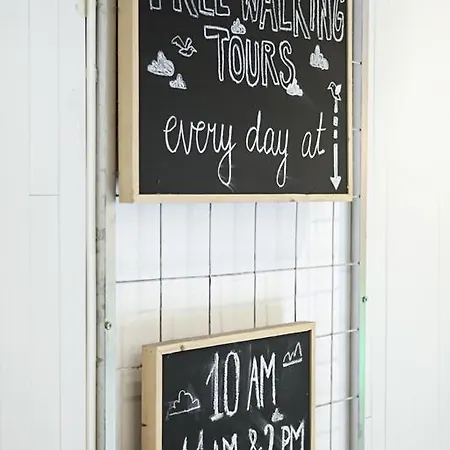 FREE WALKING
TOURS
every day at
10 AM
11 AM & 2 PM